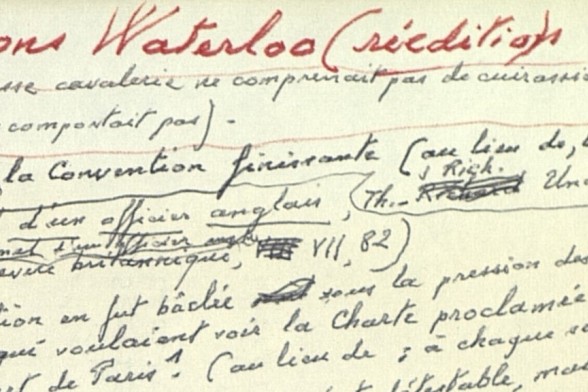 ons Waterloo (réédition
sse cavalerie ne comprenait pas de cuirassie
comportait pas) -
la Convention finissante (au lieu de,
Rich.
d'un officier anglais, Th.- Richard Un
d'un officier
britannique, VII, 82)
ion en fut bâclée sous la pression des
qui voulaient voir la Charte proclamée
et de Paris 1. (au lieu de ; à chaque se
détestable, ma